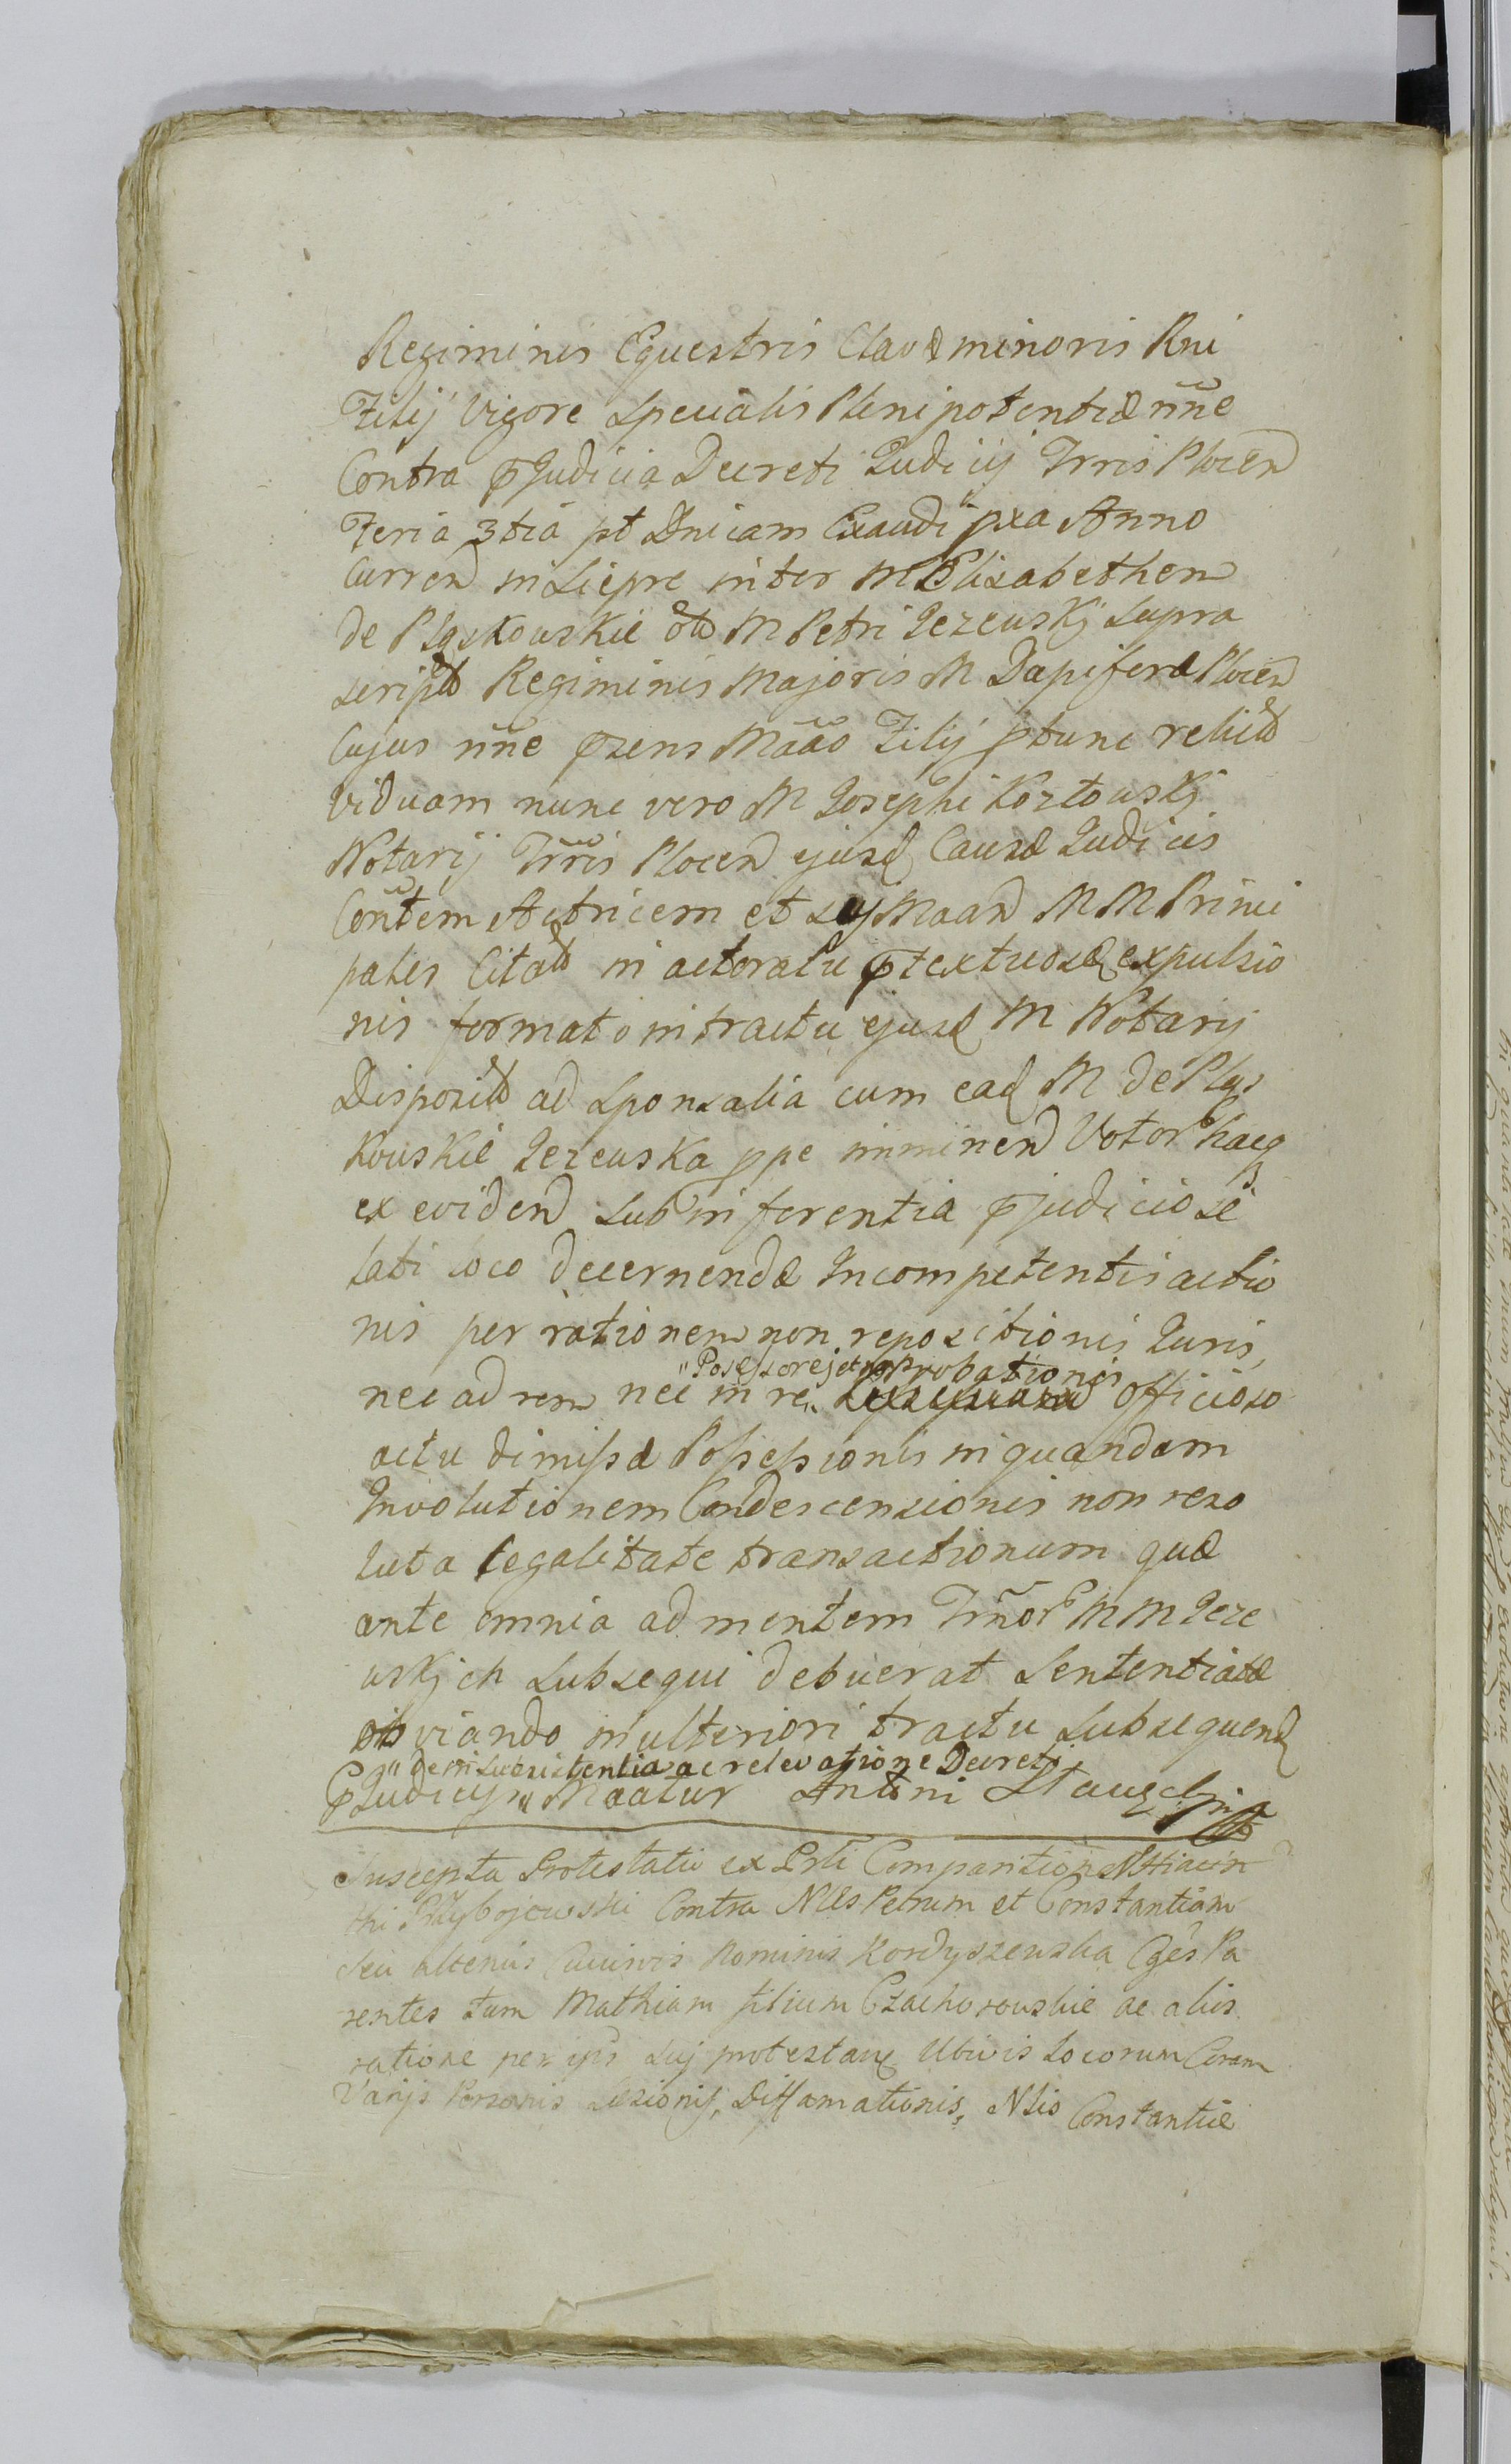 Regiminis Equestris Clavæ minoris Rni
Filij Vigore Specialis Plenipotentiæ nn̄e
Contra p̄Judicia Decreti Judicij Trris Plocen
Feria 3tia pt Dnicam Exaudi pxa Anno
Curren in Siepre inter M Elisabetham
de Pląskowskie M Petri Jezewskj Supra
script Regiminis Majoris M Dapiferæ Plocen
Cujus nn̄e p̄sens Filij ptunc relict
Viduam nunc vero M Josephi Kozłowskj
Notarij Trris Plocen ejusd Causæ Judicis
Contem Actricem et M M Princi
pales Citat in actoratu p̄textuosæ expulsio
nis formato intractu ejusd M Notarij
Disposit ad Sponsalia cum ead M de Pląs
kowskie Jezewska ppe imminen Votor haeq
ex eviden Subinferentia p̄judiciose
lati loco decernendæ Incompetentis actio
nis per rationem non repositionis Juris,
nec ad rem nec in re officioso
"Possessorej et approbationis
actu dimissæ Possessionis in quandam
Involutionem Condescensionis non reso
luta legalitate transactionum quæ
ante omnia ad mentem Trnor M M Jeze
wskjch Subsequi debuerat Sententiæ
obviando in ulteriori tractu Subsequend
" de insubsistentia ac relevatione Decreti
p̄Judicijs " Maatur Antoni
Suscepta Protestatio ex Prli Comparitione N Hiacin
thi Przybojewski Contra Nles Petrum et Constantiam
seu alterius Cuiusvis Nominis Kordyszewskie Cges Pa
rentes tum Mathiam filium Czachorowskie ac alios
ratione per ips Suj protestan Ubivis Locorum Coram
Varijs Personis Læsionis, Diffamationis, Nlio Constantiæ